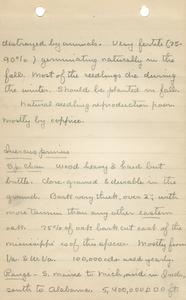 destroyed by animals. Very fertile (75-
90%) germinating naturally in the
fall. Most of the seedlings die during
the winter. Should be planted in fall.
Natural seedling reproduction poor
mostly by coppice.
Quercus prinus
Sy. Char. Wood heavy & hard but
brittle. Close-grained & durable in the
ground. Bark very thick, over 2" with
more tannin than any other eastern
oak. 75% of oak bark cut east of the
mississippi is of this species. Mostly from
Va. & W.Va. 100,000 cds used yearly.
Range - S. maine to
south to Alabama. 5,400,000,000 ft